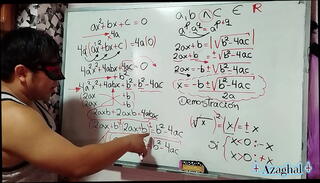 ax²+bx+c=0
4a
4a(ax²+bx+c)=4a(0)
4a²x²+4abx+4ac=0
+b²
4a²x²+4abx+b²=b²-4ac
2ax
+b
2ax
+b
2axb+2axb=4abx
(2ax+b)(2ax+b)=b²-4ac
b²-4ac
a,b ∧ c ∈ R
a^p·a^q=a^p+q
2ax+b=|√b²-4ac|
2ax+b=±√b²-4ac
2ax=-b±√b²-4ac
x=-b±√b²-4ac
2a
Demostración
(√x)²=|x|=±x
Si
x<0:-x
x>0:+x
Azaghal